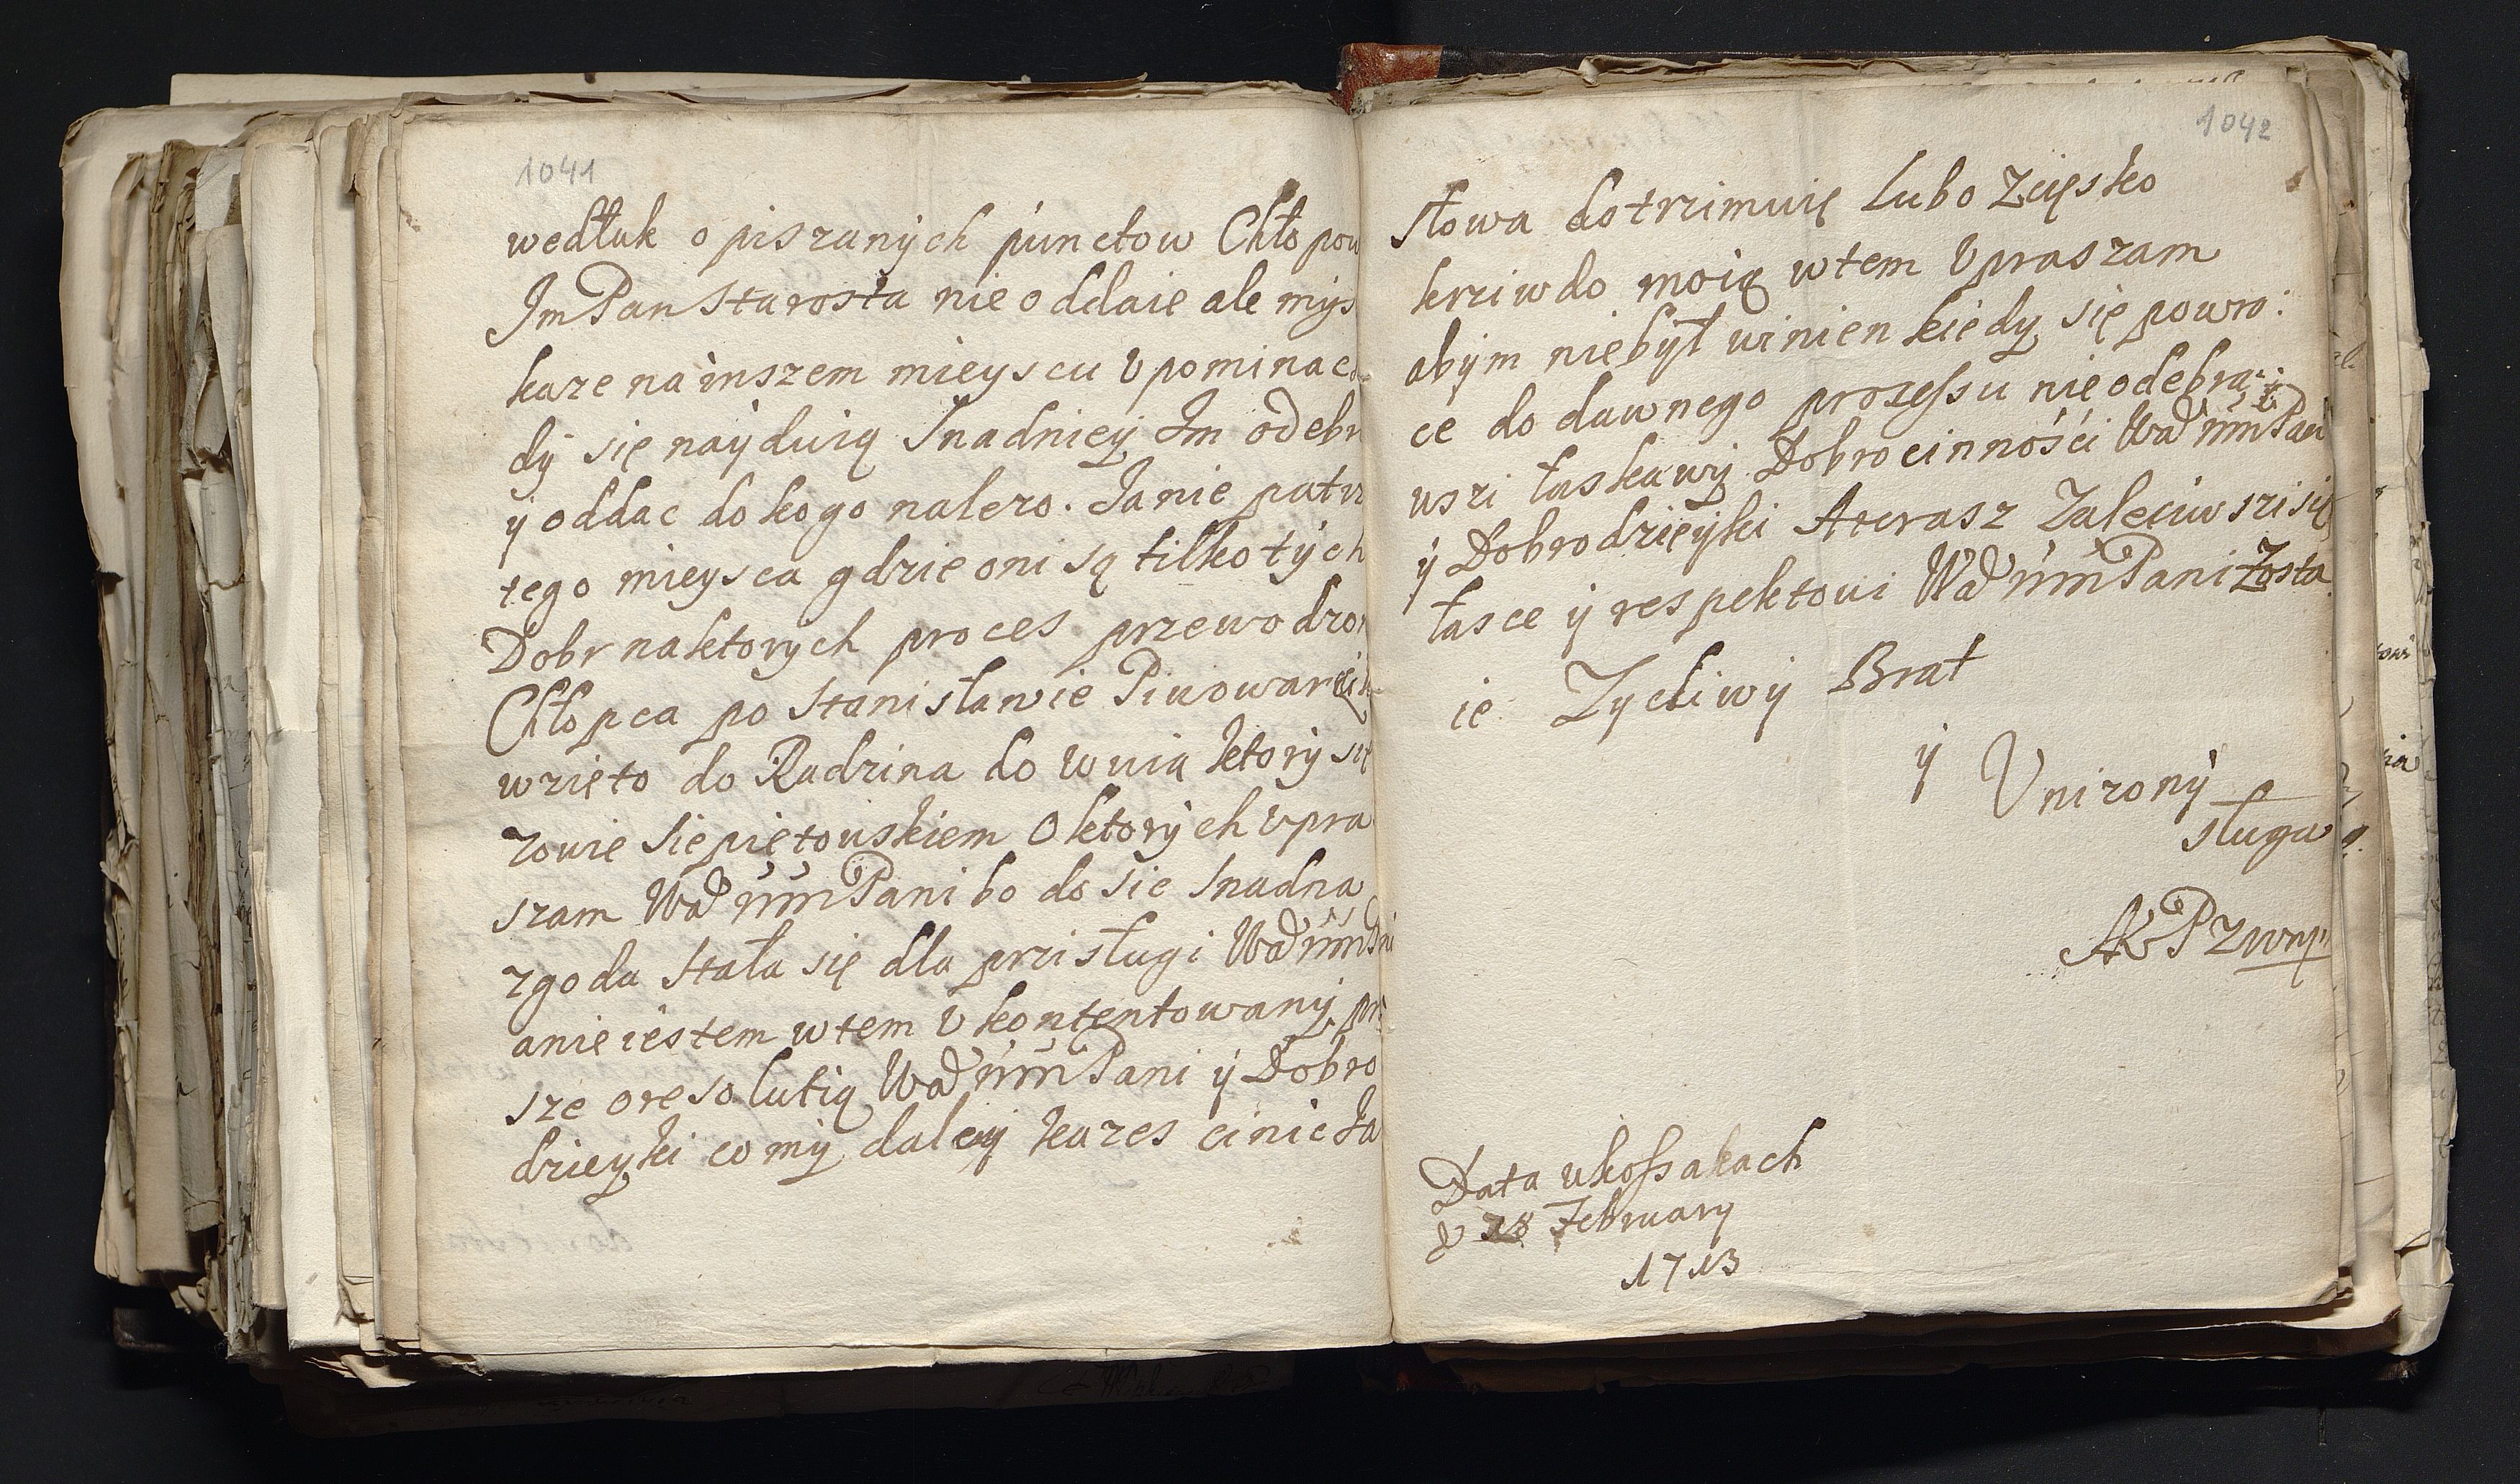 1041
wedłuk opiszanych punctow Chłopow
Jm Pan Starosta nie oddaie ale mys
kaze na inszem mieyscu Upominac
dy się nayduią Snadniey Im odebr
y oddac do kogo nalezo. Ja nie patrz
tego mieysca gdzie oni są tilko tych
Dobr na ktorych proces przewodzon
Chłopca po Stanisławie
wzięto do Radzina do wuia ktory się
zowie Siepiętowskiem O ktorych upra
szam Wad mm Pani bo do sie snadna
zgoda stała się dla prisługi Wad mm Pni
anie iestem wtem Ukontentowany pr
sze o resolutią Wad mm Pani y Dobro
dzieyki co my daley kazes cinic Ja
1042
słowa dotrzimuię Lubo Zcięsko
krziwdo moią wtem Upraszam
abym niebył winien kiedy się powro:
ce do dawnego prozessu nie odebra:
wszi łaskawy Dobrocinności Wad mm Pani
y Dobrodzieyki A teraz Zaleciwszi się
łasce y respektowi Wad mm Pani Zosta
ie Zycliwy Brat
y Unizony
sługa
Data w kossakach
d 28 February
1713